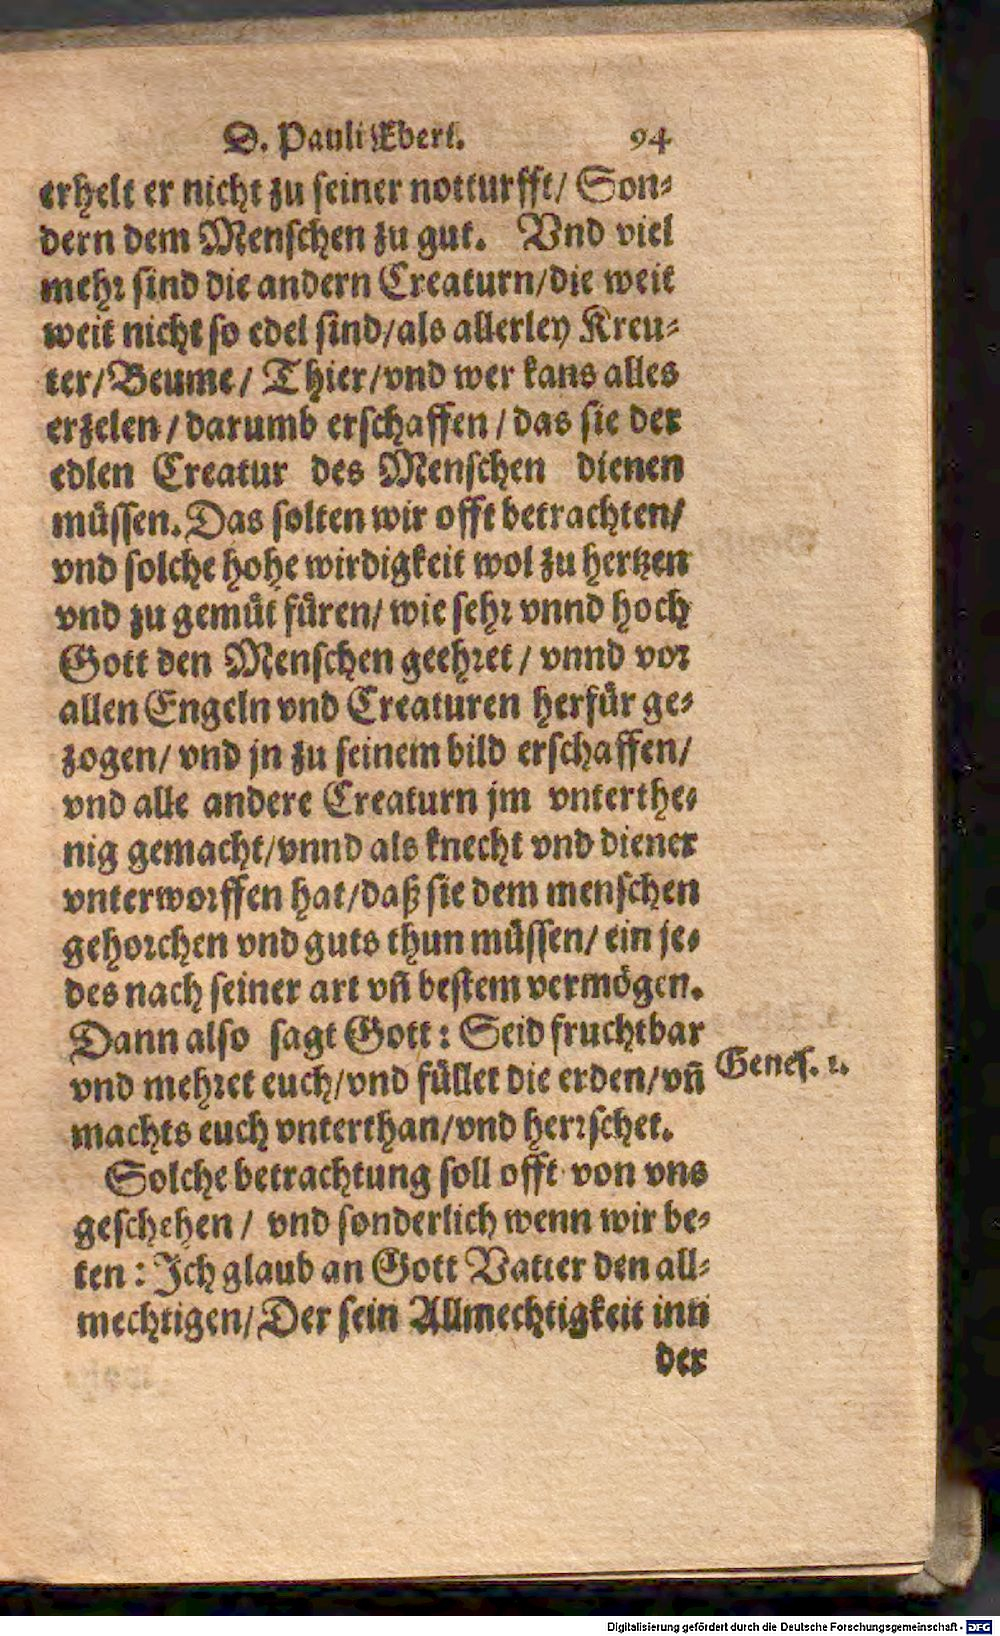 D. Pauli Eberi. 94
erhelt er nicht zu seiner notturfft/ Son⸗
dern dem Menschen zu gut. Vnd viel
mehr sind die andern Creaturn/die weit
weit nicht so edel sind/als allerley Kreu⸗
ter/Beume/ Thier/vnd wer kans alles
erzelen/darumb erschaffen/das sie der
edlen Creatur des Menschen dienen
müssen. Das solten wir offt betrachten/
vnd solche hohe wirdigkeit wol zu hertzen
vnd zu gemüt füren/ wie sehr vnnd hoch
Gott den Menschen geehret/ vnnd vor
allen Engeln vnd Creaturen herfür ge⸗
zogen/ vnd jn zu seinem bild erschaffen/
vnd alle andere Creaturn jm vnterthe⸗
nig gemacht/vnnd als knecht vnd diener
vnterworffen hat/daß sie dem menschen
gehorchen vnd guts thun müssen/ ein je⸗
des nach seiner art vñ bestem vermögen.
Dann also sagt Gott: Seid fruchtbar
vnd mehret euch/vnd füllet die erden/vñ
Genes. 1.
machts euch vnterthan/vnd herrschet.
Solche betrachtung soll offt von vns
geschehen/ vnd sonderlich wenn wir be⸗
ten: Ich glaub an Gott Vatter den all⸗
mechtigen/Der sein Allmechtigkeit inn
der
Digitalisierung gefördert durch die Deutsche Forschungsgemeinschaft - DFG